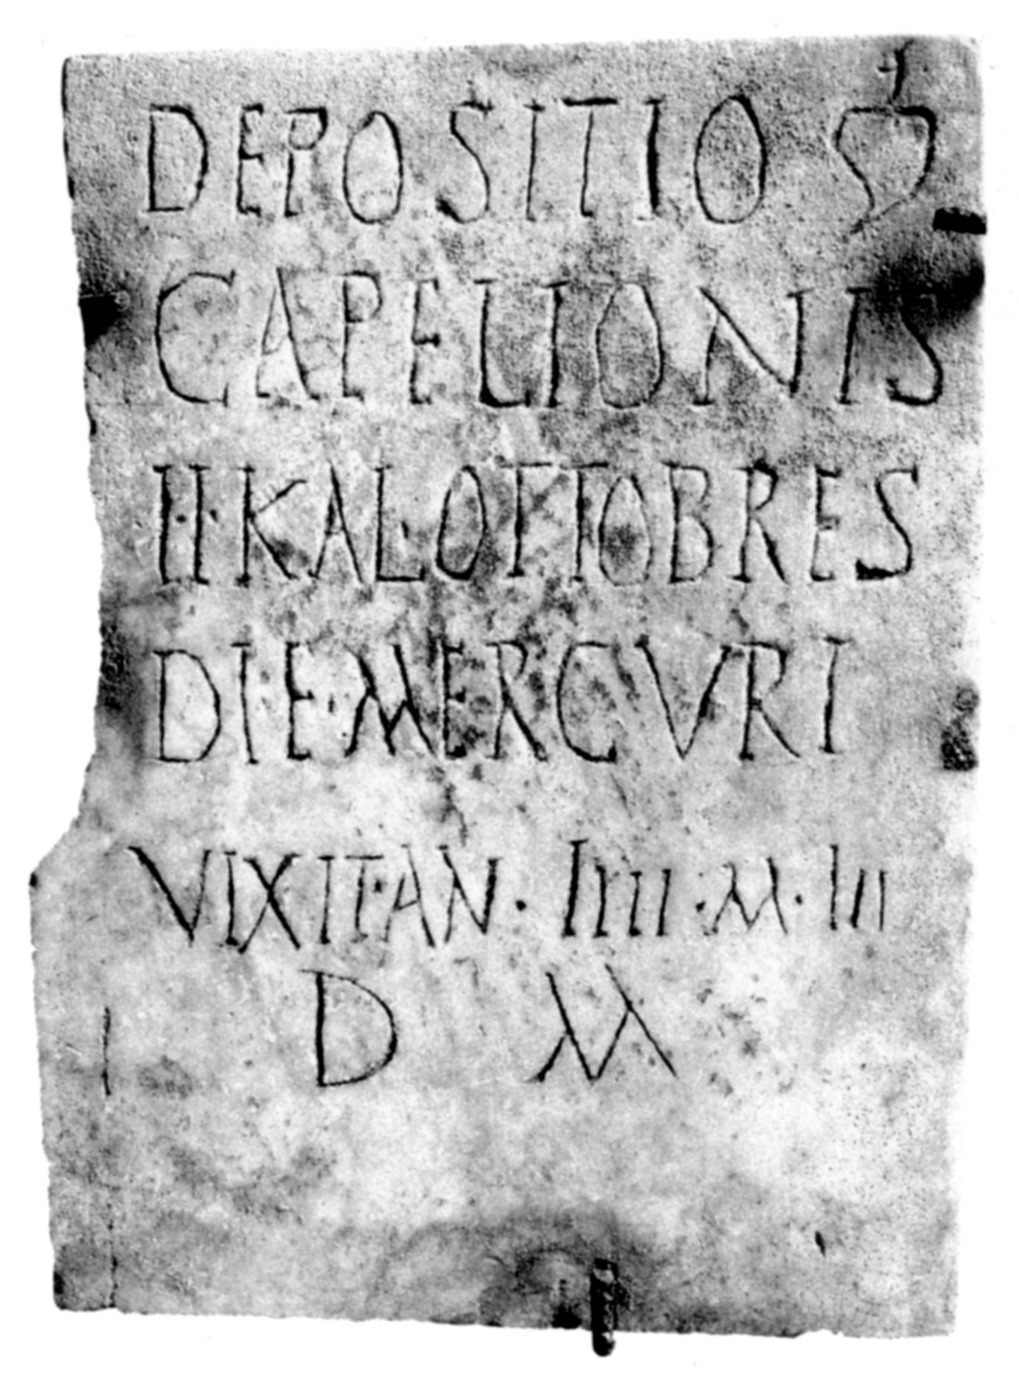 DEPOSITIO ❦
CAPELIONIS
II·KAL·OTTOBRES
DIE·MERCVRI
VIXIT·AN·IIIII·M·III
D M